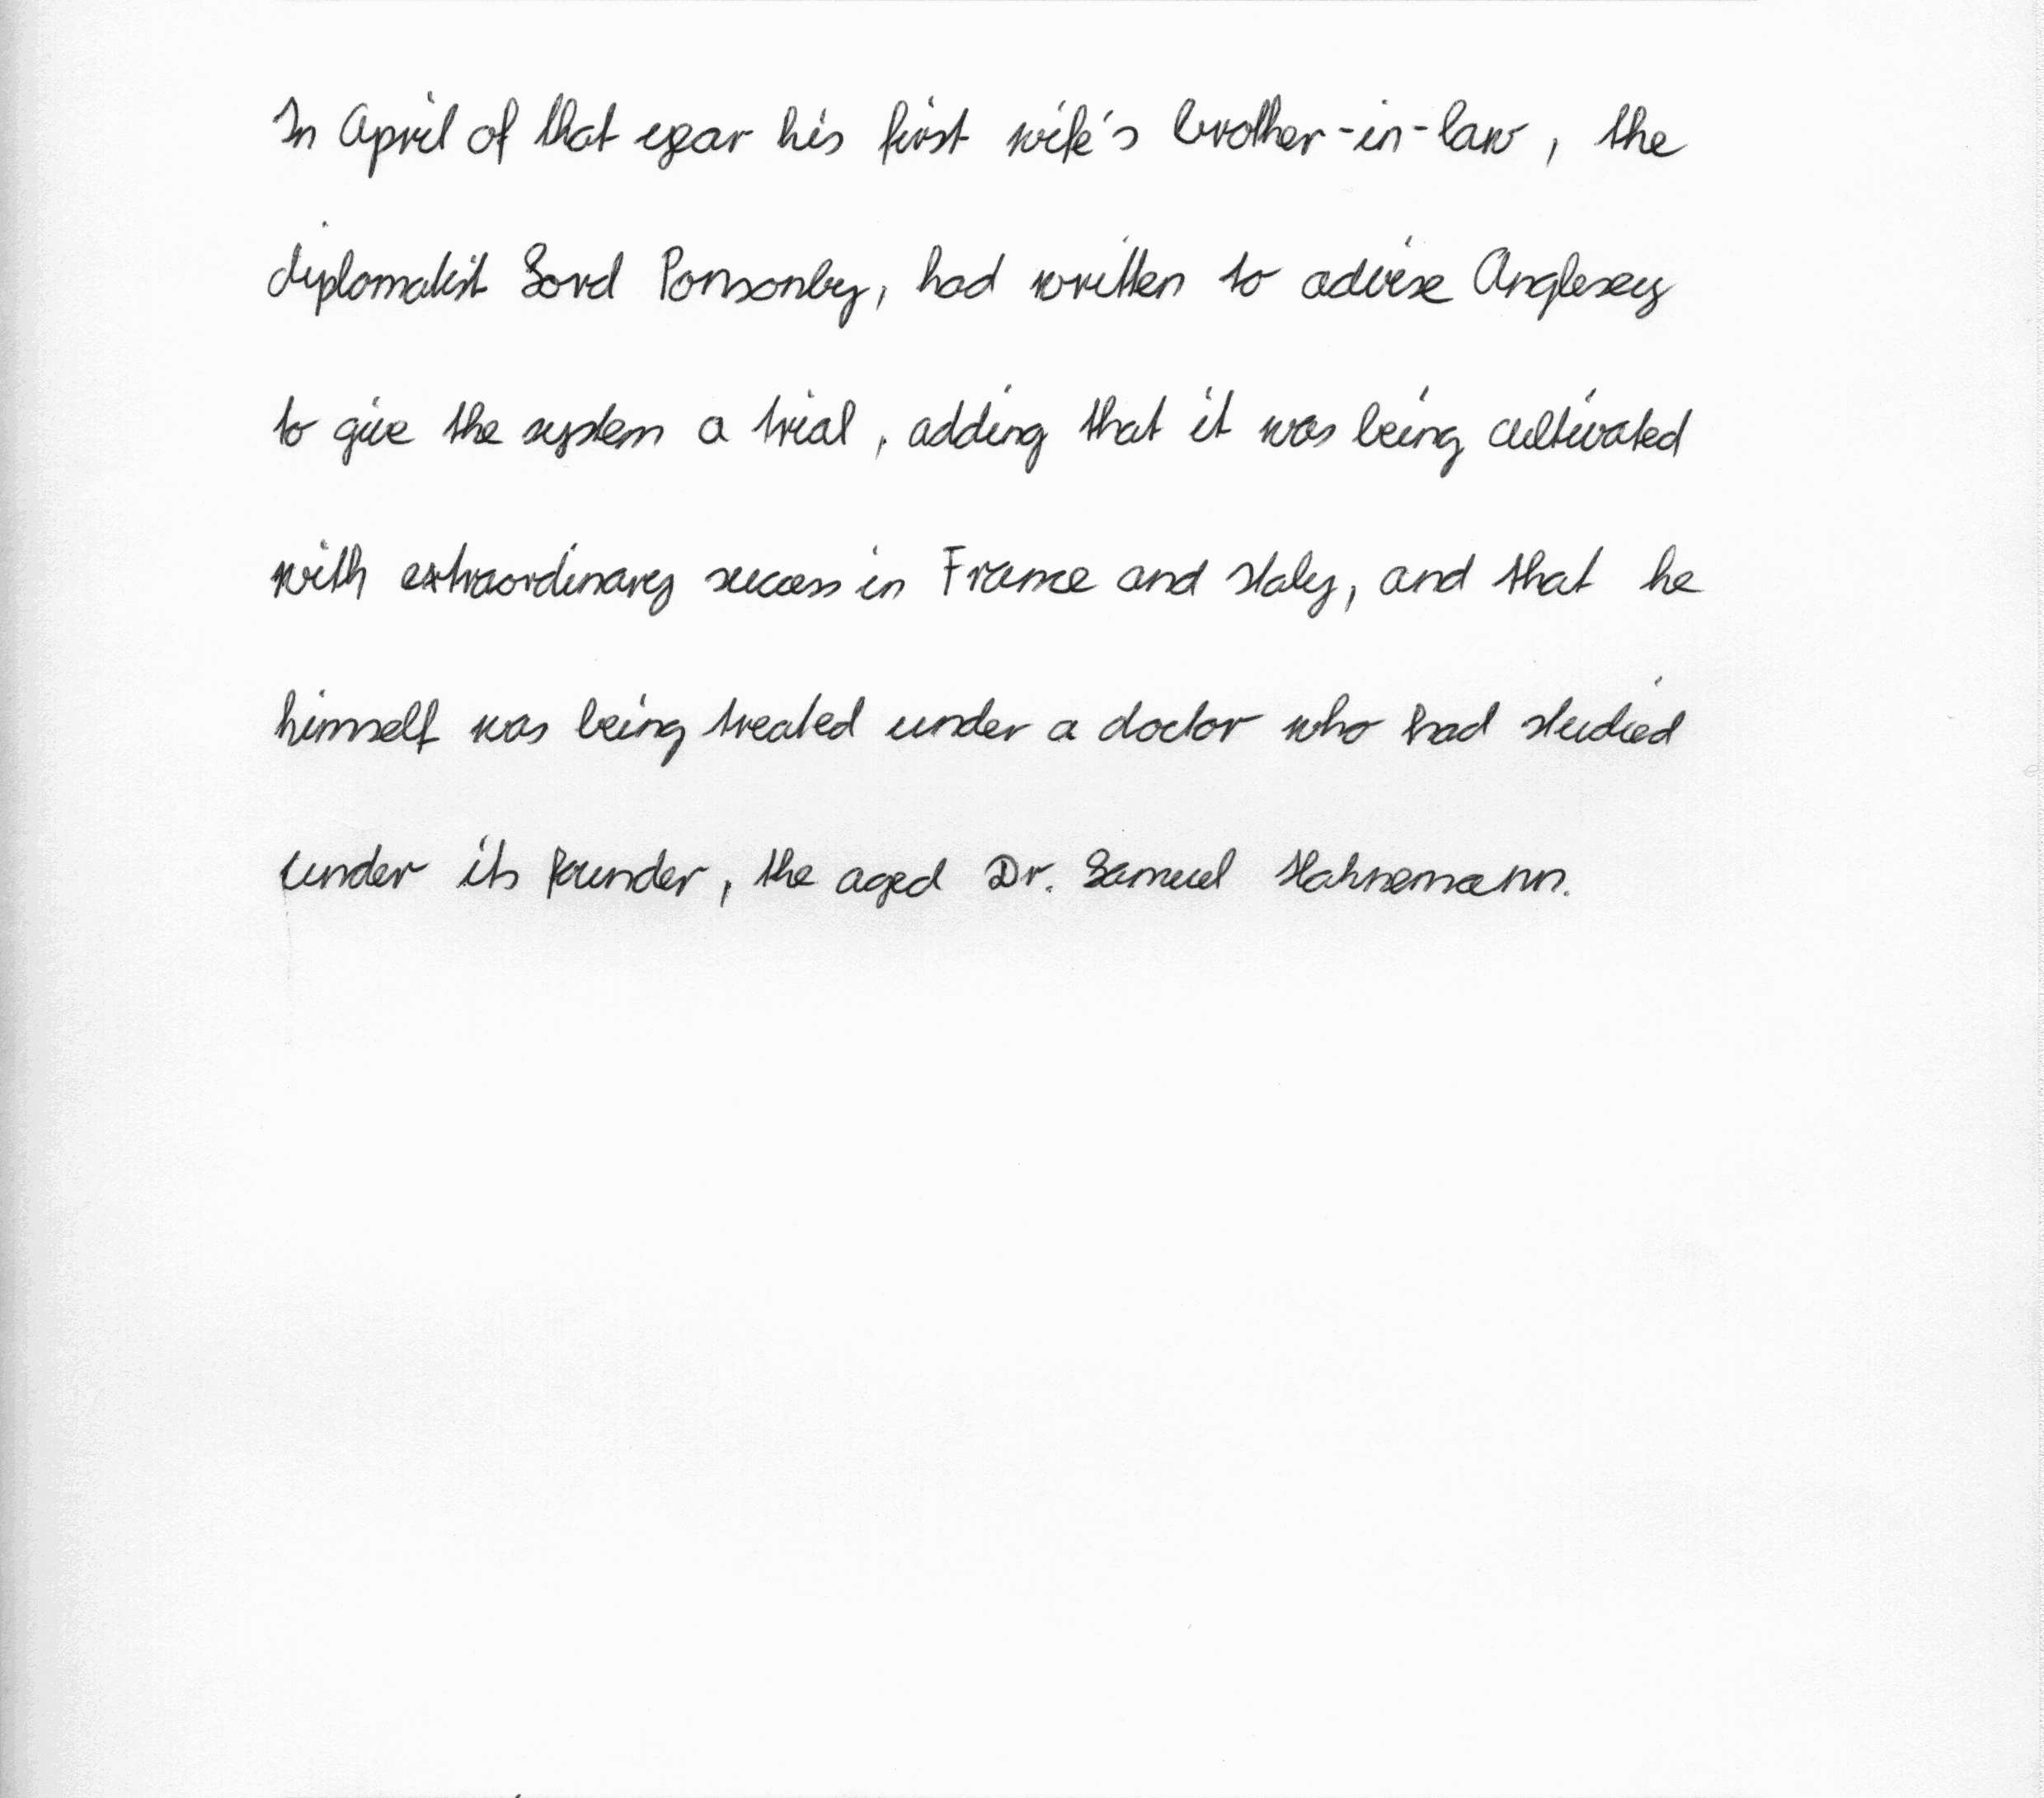 In April of that year his first wife's brother-in-law, the
diplomatist Lord Ponsonby, had written to advise Anglesey
to give the system a trial, adding that it was being cultivated
with extraordinary success in France and Italy, and that he
himself was being treated under a doctor who had studied
under its founder, the aged Dr. Samuel Hahnemann.